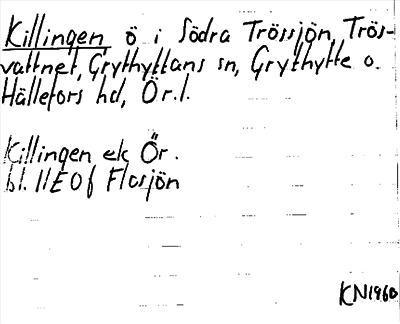 Killingen ö i Södra Trössjön, Trös-
vattnet, Grythyttans sn, Grythytte o.
Hällefors hd, Ör. l.
Killingen ek, Ör.
bl. 11E0f Flosjön
KN1960